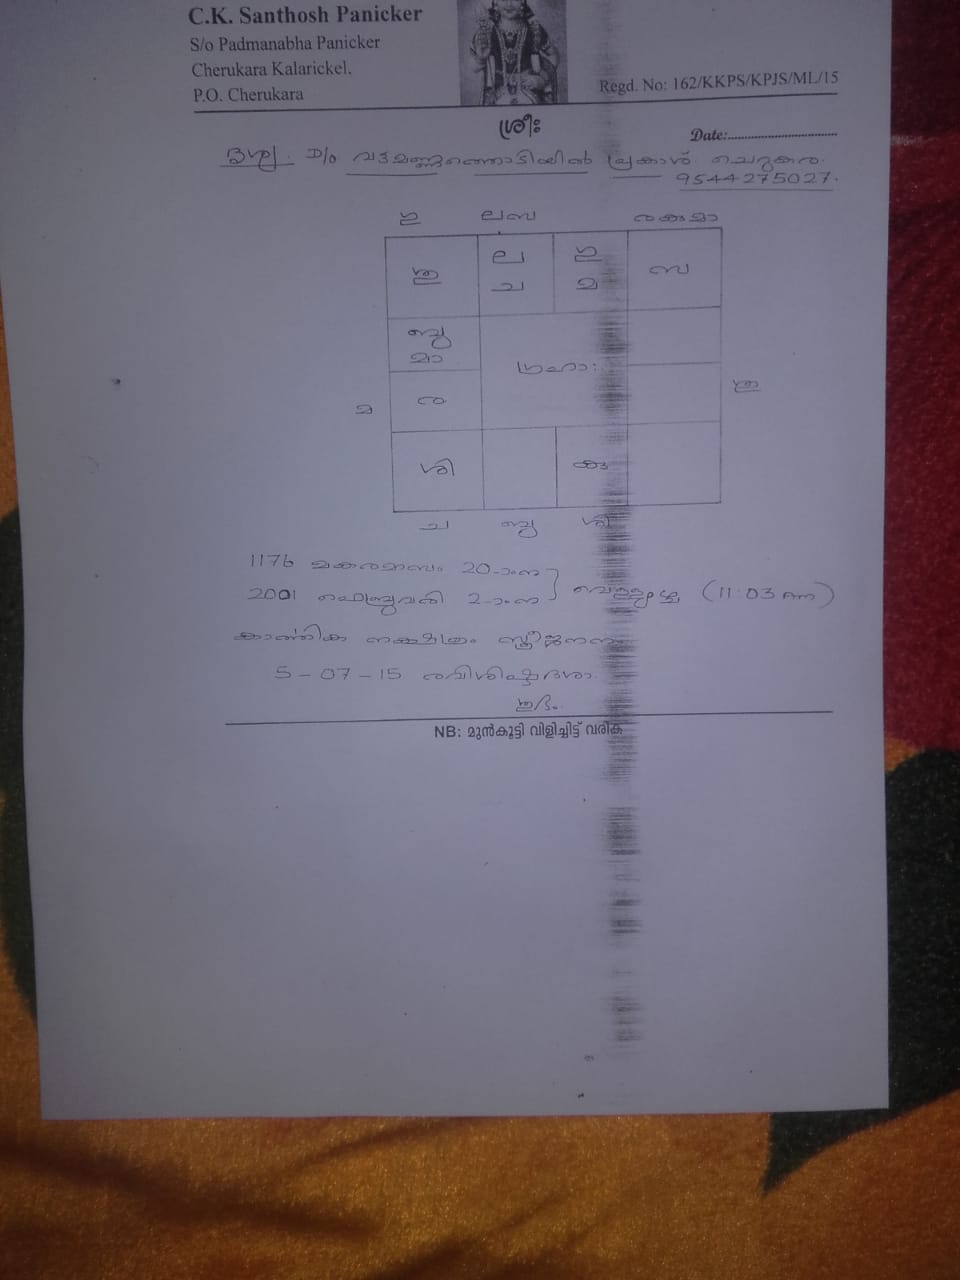 C.K. Santhosh Panicker
S/o Padmanabha Panicker
Cherukara Kalarickel,
P.O. Cherukara
Regd. No: 162/KKPS/KPJS/ML/15
ശ്രീഃ
Date:
D/o പ്രകാശ് ചെറുകര.
9544275027.
ല സ
ല
ച
മ
സ
ബു
മാ
ഗ്രഹാഃ
ര
മ
ശി
കു
ച ബു ശി
1176 മകരമാസം 20-ാംനു
2001 ഫെബ്രുവരി 2-ാംനു വെള്ളിയാഴ്ച (11:03 am)
കാർത്തിക നക്ഷത്രം സ്ത്രീജനനം
5-07-15 രവിശിഷ്ടദശാ.
ഇദം.
NB: മുൻകൂട്ടി വിളിച്ചിട്ട് വരിക